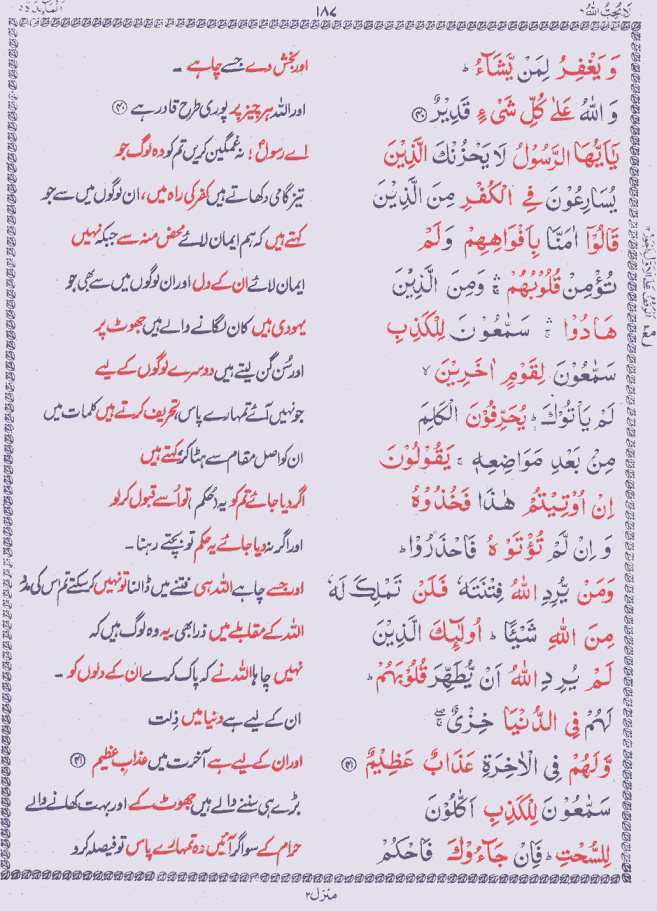 لَا يُحِبُّ اللهُ ١٨٧ الْمَآئِدَة ٥
وَ يَغْفِرُ لِمَنْ يَّشَآءُ ؕ اور بخش دے جسے چاہے ۔
وَ اللهُ عَلٰى كُلِّ شَىْءٍ قَدِيْرٌ ﴿۴۰﴾ اور اللہ ہر چیز پر پوری طرح قادر ہے ﴿۴۰﴾
يٰۤاَيُّهَا الرَّسُوْلُ لَا يَحْزُنْكَ الَّذِيْنَ اے رسولؐ! نہ غمگین کریں تم کو وہ لوگ جو
يُسَارِعُوْنَ فِى الْكُفْرِ مِنَ الَّذِيْنَ تیز گامی دکھاتے ہیں کفر کی راہ میں، ان لوگوں میں سے جو
قَالُوْۤا اٰمَنَّا بِاَفْوَاهِهِمْ وَلَمْ کہتے ہیں کہ ہم ایمان لائے محض منہ سے جبکہ نہیں
تُؤْمِنْ قُلُوْبُهُمْ ۛۚ وَمِنَ الَّذِيْنَ ایمان لائے ان کے دل اور ان لوگوں میں سے بھی جو
هَادُوْا ۛۚ سَمّٰعُوْنَ لِلْكَذِبِ یہودی ہیں کان لگانے والے ہیں جھوٹ پر
سَمّٰعُوْنَ لِقَوْمٍ اٰخَرِيْنَ ۙ اور سُن گُن لیتے ہیں دوسرے لوگوں کے لیے
لَمْ يَاْتُوْكَ ؕ يُحَرِّفُوْنَ الْكَلِمَ جو نہیں آئے تمہارے پاس، تحریف کرتے ہیں کلمات میں
مِنْۢ بَعْدِ مَوَاضِعِهٖ ۚ يَقُوْلُوْنَ ان کو اصل مقام سے ہٹا کر کہتے ہیں
اِنْ اُوْتِيْتُمْ هٰذَا فَخُذُوْهُ اگر دیا جائے تم کو یہ (حُکم) تو اُسے قبول کر لو
وَ اِنْ لَّمْ تُؤْتَوْهُ فَاحْذَرُوْا ؕ اور اگر نہ دیا جائے یہ حکم تو بچتے رہنا۔
وَمَنْ يُّرِدِ اللهُ فِتْنَتَهٗ فَلَنْ تَمْلِكَ لَهٗ اور جسے چاہے اللہ ہی فتنے میں ڈالنا تو نہیں کر سکتے تم اس کی مدد
مِنَ اللهِ شَيْـًٔا ؕ اُولٰٓئِكَ الَّذِيْنَ اللہ کے مقابلے میں ذرا بھی۔ یہ وہ لوگ ہیں کہ
لَمْ يُرِدِ اللهُ اَنْ يُّطَهِّرَ قُلُوْبَهُمْ ؕ نہیں چاہا اللہ نے کہ پاک کرے ان کے دلوں کو ۔
لَهُمْ فِى الدُّنْيَا خِزْىٌ ۖۚ ان کے لیے ہے دنیا میں ذِلت
وَّلَهُمْ فِى الْاٰخِرَةِ عَذَابٌ عَظِيْمٌ ﴿۴۱﴾ اور ان کے لیے ہے آخرت میں عذابِ عظیم ﴿۴۱﴾
سَمّٰعُوْنَ لِلْكَذِبِ اَكّٰلُوْنَ بڑے ہی سننے والے ہیں جھوٹ کے اور بہت کھانے والے
لِلسُّحْتِ ؕ فَاِنْ جَآءُوْكَ فَاحْكُمْ حرام کے سو اگر آئیں وہ تمہارے پاس تو فیصلہ کرو
منزل ۲